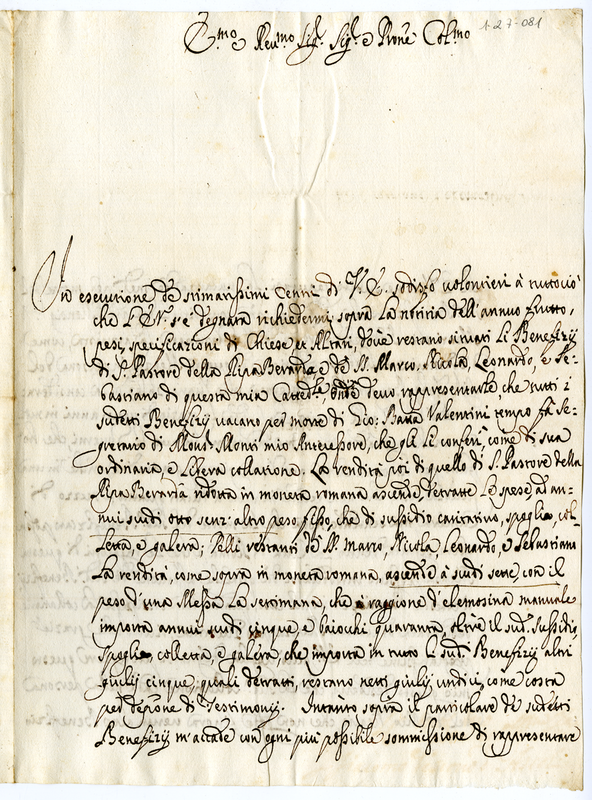 1-27-081
E.mo e Reu.mo Sig.r Sig.r e Prone Col.mo
In esecutione de stimatissimi cenni di V. E. sodisfo uolontieri à tuttociò
che l'E. V. s'è degnata richiedermi sopra la notitia dell'annuo frutto,
pesi, specificationi di Chiese et Altari, doue restano situati li Benefizij
di S. Pastore della Ripa Berarda e de SS. Marco, Nicola, Leonardo, e Se-
bastiano di questa mia Catted.le onde deuo rappresentarle, che tutti i
sudetti Benefizij uacano per morte di Gio: Batta Valentini tempo fà Se-
gretario di Mons.r Monti mio Antecessore, che gli li conferì, come di sua
ordinaria, e libera collatione. La rendita poi di quello di S. Pastore della
Ripa Berarda ridotta in moneta romana ascende, detratte le spese, ad an-
nui scudi otto senz'altro peso fisso, che di sussidio caritatiuo, spoglio, col-
letta, e galera; Delli restanti de SS. Marco, Nicola, Leonardo, e Sebastiano
la rendita, come sopra in moneta romana, ascende à scudi sette, con il
peso d'una Messa la settimana, che à raggione d'elemosina manuale
importa annui scudi cinque, e baiocchi quaranta, oltre il sud.o sussidio,
spoglio, colletta, e galera, che importa in tutto li sud.i Benefizij altri
giulij cinque, quali detratti, restano netti giulij undici, come costa
per depone di Testimonij. Intanto sopra il particolare de sudetti
Benefizij m'accade con ogni più possibile sommissione di rappresentare